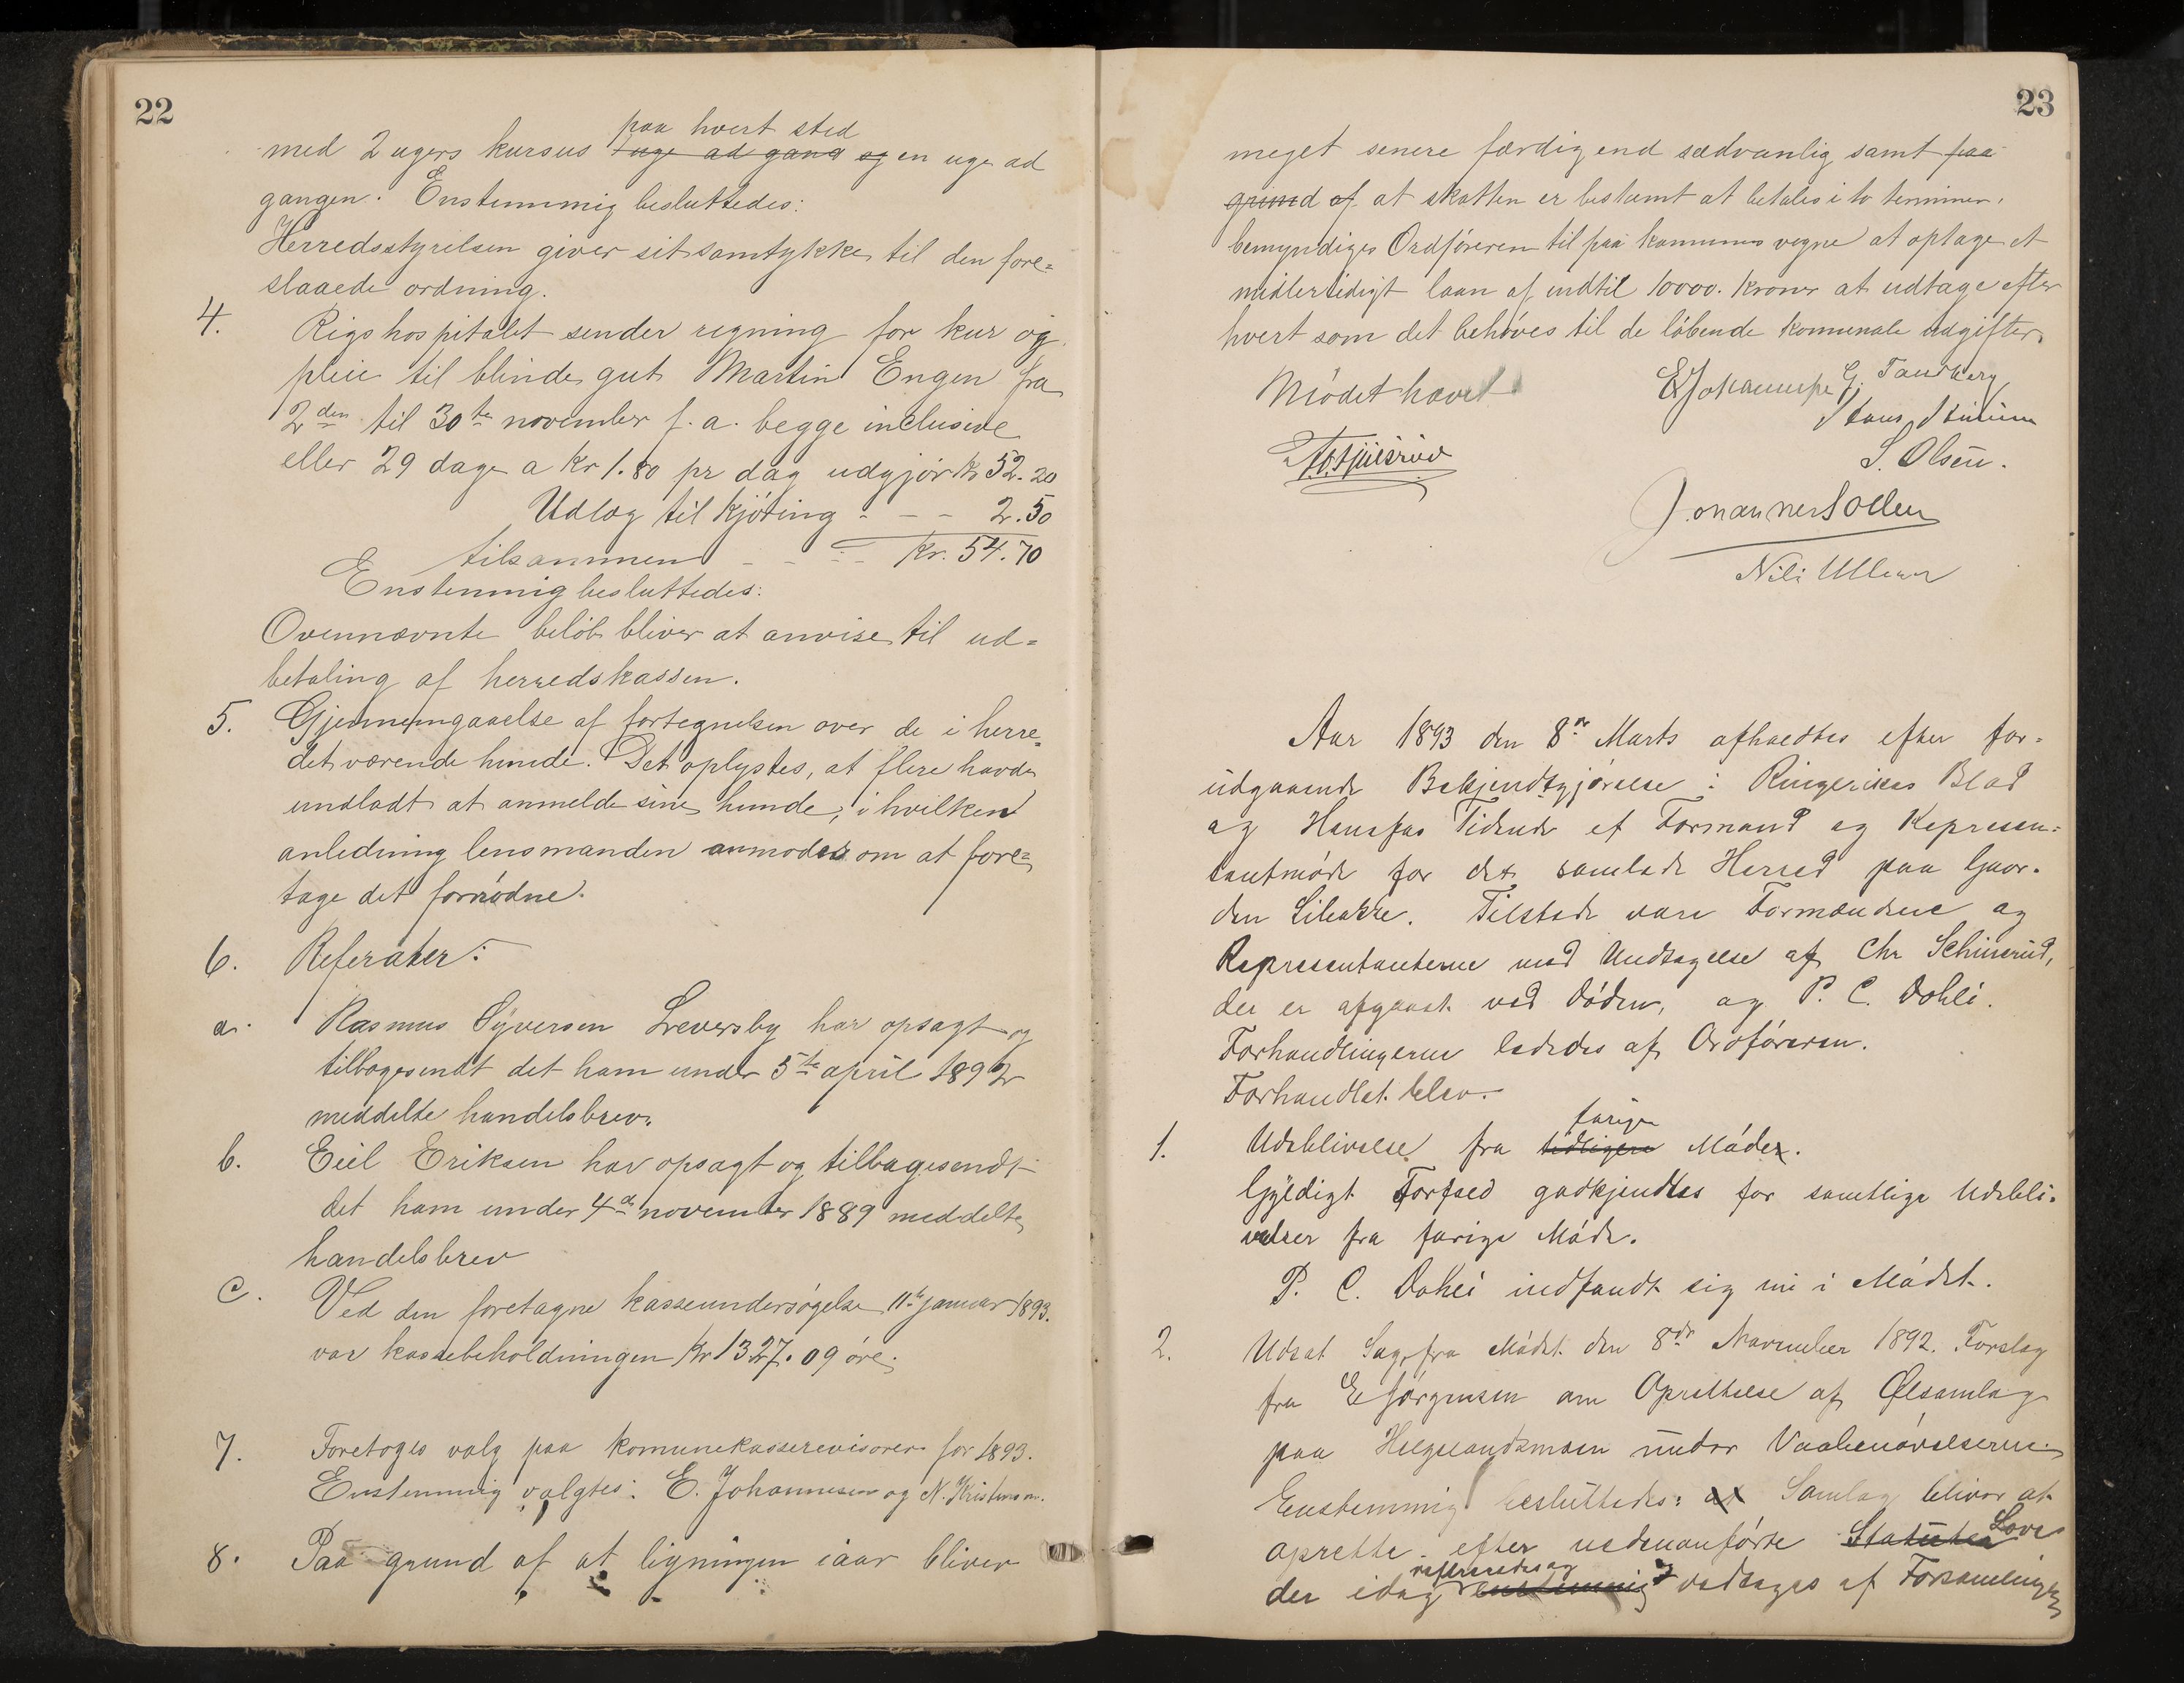 22
paa hvert sted
med 2 ugers kursus uge ad gang og en uge ad
gangen. Enstemmig besluttedes:
Herredsstyrelsen giver sit samtykke til den fore=
slaaede ordning.
4. Rigshospitalet sender regning for kur og
pleie til blinde gut Martin Engen fra
2den til 30te november f. a. begge inclusive
eller 29 dage a Kr 1.80 pr dag udgjør Kr 52.20
Udlæg til Kjøring - - - 2.50
tilsammen - - - - Kr. 54.70
Enstemmig besluttedes:
Ovennævnte beløb bliver at anvise til ud=
betaling af herredskassen.
5. Gjennemgaaelse af fortegnelsen over de i herre=
det værende hunde. Det oplystes, at flere havde
undladt at anmelde sine hunde, i hvilken
anledning lensmanden anmodes om at fore=
tage det fornødne.
6. Referater:
a. Rasmus Syversen har opsagt og
tilbagesendt det ham under 5te april 1892
meddelte handelsbrev.
b. Eriksen har opsagt og tilbagesendt
det ham under 4de november 1889 meddelte
handelsbrev
c. Ved den foretagne kasseundersøgelse 11te januar 1893.
var kassebeholdningen Kr 1327.09 øre.
7. Foretoges valg paa komunekasserevisorer for 1893.
Enstemmig valgtes: E. Johannesen og N. Kristensen.
8. Paa grund af at ligningen iaar bliver
23
meget senere færdig end sædvanlig samt paa
grund af at skatten er bestemt at betales i to terminer,
bemyndiges Ordføreren til paa kommunes vegne at optage et
midlertidigt laan af indtil 10000. Kroner at udtage efter
hvert som det behøves til de løbende komunale udgifter.
Mødet hævet
E Johannesen G. Tandberg
S. Olsen.
Johannes Sollen
Nils Ulleren
Aar 1893 den 8de Marts afholdtes efter for=
udgaaende Bekjendtgjørelse i Ringerikes Blad
og Hønefos Tidende et Formand og Represen=
tantmøde for det samlede Herred paa Gaar=
den Libakke. Tilstede vare Formændene og
Representanterne med Undtagelse af Chr
der er afgaaet ved Døden, og P. C. Dohli.
Forhandlingerne lededes af Ordføreren.
Forhandlet blev.
forige
1. Udeblivelse fra tidligere Møder.
Gyldigt Forfald godkjendtes for samtlige Udebli=
velser fra forige Møde.
P. C. Dohli indfandt sig nu i Mødet.
2. Udsat Sag fra Mødet den 8de November 1892. Forslag
fra E Jørgensen om Oprettelse af Ølsamlag
paa Helgelandsmoen under Vaabenøvelserne.
Enstemmig besluttedes: at Samlag bliver at
oprette efter nedenanførte Statuter Love
refereredes og
der idag enstemmig vedtages af Forsamlingen